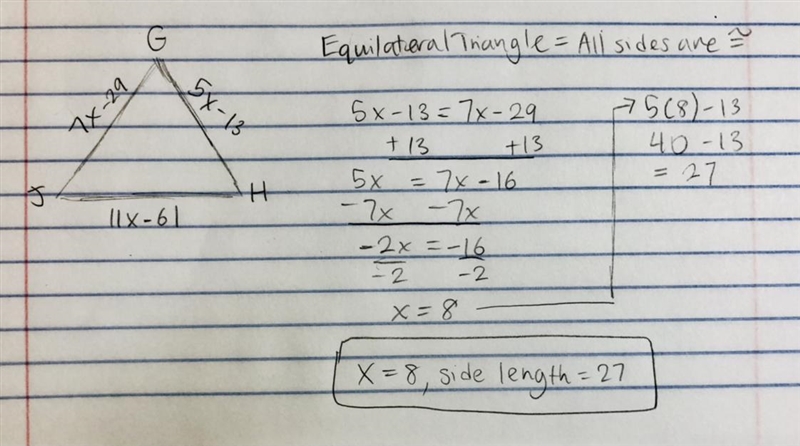 Equilateral Triangle = All sides are ≅
G
7x-29
5x-13
J
H
11x-61
5x-13 = 7x-29
+13 +13
5x = 7x-16
-7x -7x
-2x = -16
-2 -2
x = 8
5(8)-13
40-13
= 27
X = 8, side length = 27